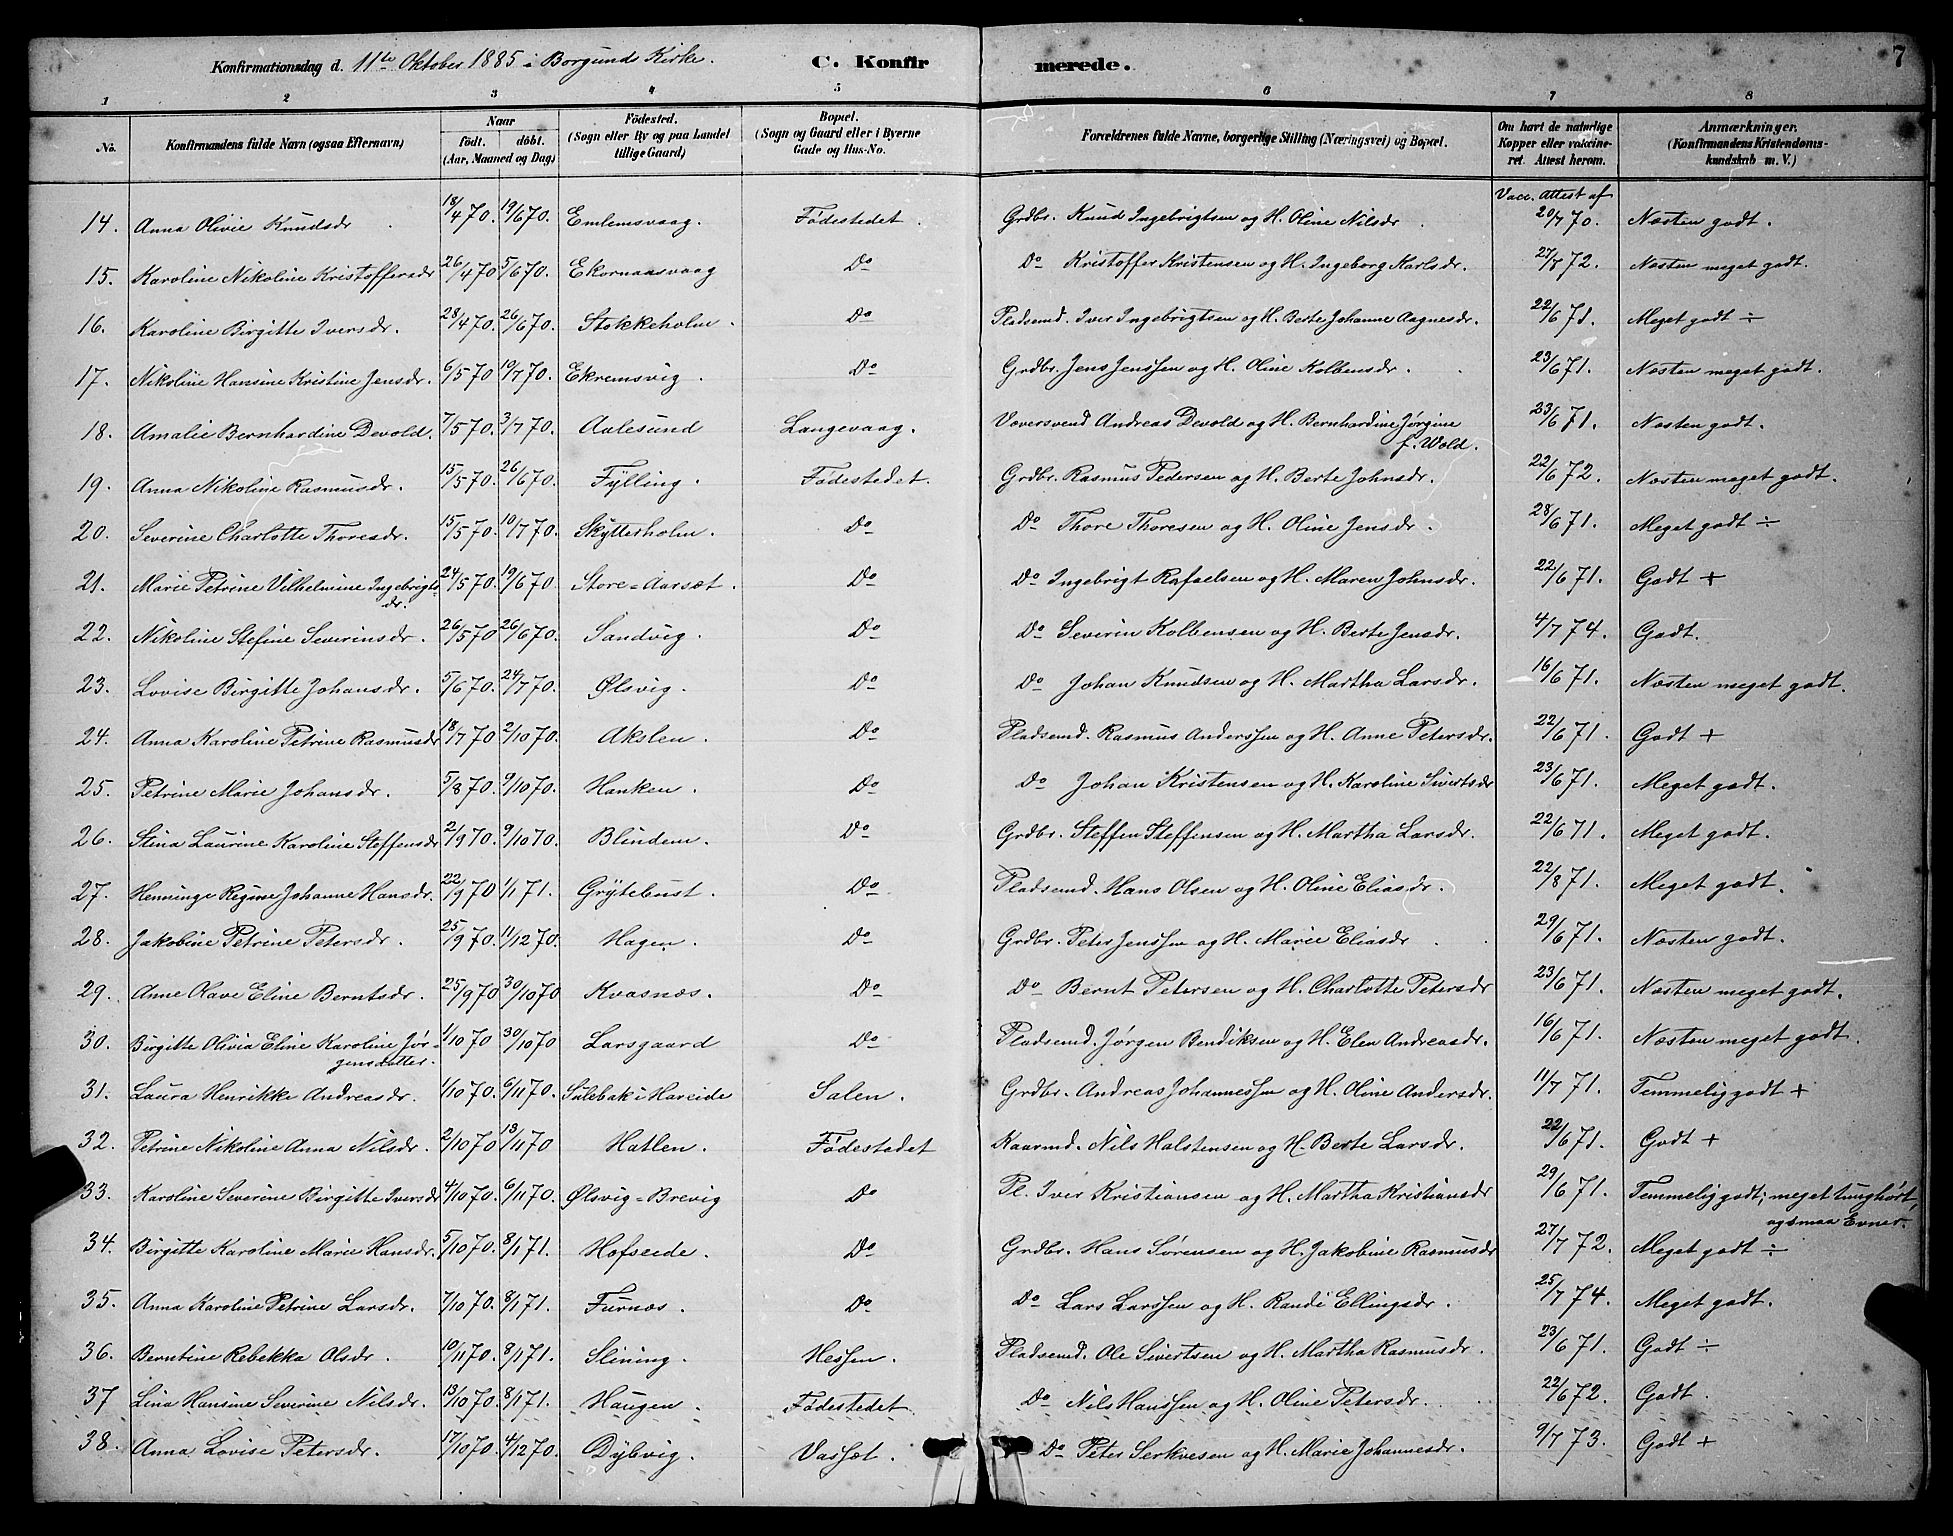 Konfirmationsdag d. 11te Oktober 1885 i Borgunds Kirke. C. Konfirmerede. 7
1 2 3 4 5 6 7 8
No. Konfirmandens fulde Navn (ogsaa Efternavn) Naar født. døbt. (Aar, Maaned og Dag) Fødested. (Sogn eller By og paa Landet tillige Gaard) Bopæl. (Sogn og Gaard eller i Byerne Gade og Hus-No. Forældrenes fulde Navne, borgerlige Stilling (Næringsvei) og Bopæl. Om havt de naturlige Kopper eller vaccineret. Attest herom. Anmærkninger. (Konfirmandens Kristendomskundskab m. V.)
Vacc. Attest af
14. Anna Olivie Knudsdr 18/4 70. 19/6 70. Emlemsvaag. Fødestedet. Grdbr. Knud Ingebrigtsen og H. Oline Nilsdr. 20/7 70. Næsten godt.
15. Karoline Nikoline Kristoffersdr 26/4 70 5/6 70. Ekornaasvaag Do Do Kristoffer Kristensen og H. Ingeborg Karlsdr. 27/8 72. Næsten meget godt.
16. Karoline Birgitte Iversdr. 28/4 70. 26/6 70. Stokkeholm. Do Pladsemd. Iver Ingebrigtsen og H. Berte Johanne Aagnesdr. 22/6 71. Meget godt ÷
17. Nikoline Hansine Kristine Jensdr. 6/5 70 10/7 70. Ekremsvig. Do Grdbr. Jens Jenssen og H. Oline Kolbensdr. 23/6 71. Næsten meget godt.
18. Amalie Bernhardine Devold. 7/5 70. 3/7 70. Aalesund Langevaag. Væversvend Andreas Devold og H. Bernhardine Jørgine f. Wold. 23/6 71. Næsten godt.
19. Anna Nikoline Rasmusdr. 15/5 70. 26/6 70. Fylling. Fødestedet. Grdbr. Rasmus Pedersen og H. Berte Johnsdr. 22/6 72. Næsten meget godt.
20. Severine Charlotte Thoresdr. 15/5 70. 10/7 70. Skytterholm. Do Do Thore Thoresen og H. Oline Jensdr. 28/6 71. Meget godt ÷
21. Marie Petrine Vilhelmine Ingebrigtsdr. 24/5 70. 19/6 70. Store=Aarsæt. Do Do Ingebrigt Rafaelsen og H. Maren Johnsdr. 22/6 71. Godt +
22. Nikoline Stefine Severinsdr. 26/5 70 26/6 70. Sandvig. Do Do Severin Kolbensen og H. Berte Jensdr. 4/7 74. Godt.
23. Lovise Birgitte Johansdr. 5/6 70. 24/7 70. Ølsvig. Do Do Johan Knudsen og H. Martha Larsdr. 16/6 71. Næsten meget godt.
24. Anna Karoline Petrine Rasmusdr 18/7 70 2/10 70. Akslen. Do Pladsemd. Rasmus Anderssen og H. Anne Petersdr. 22/6 71. Godt +
25. Petrine Marie Johansdr. 5/8 70. 9/10 70. Hanken. Do Do Johan Kristensen og H. Karoline Sivertsdr 23/6 71. Meget godt.
26. Stina Laurine Karoline Steffensdr 2/9 70. 9/10 70. Blindem. Do Grdbr. Steffen Steffensen og H. Martha Larsdr. 22/6 71. Meget godt.
27. Henninge Regine Johanne Hansdr. 22/9 70 1/1 71. Grytebust. Do Pladsemd. Hans Olsen og H. Oline Eliasdr. 22/8 71. Meget godt.
28. Jakobine Petrine Petersdr. 25/9 70. 11/12 70. Hagen. Do Grdbr. Peter Jenssen og H. Marie Eliasdr 29/6 71. Næsten godt.
29. Anne Olave Eline Berntsdr. 25/9 70 30/10 70 Kvasnæs. Do Do Bernt Petersen og H. Charlotte Petersdr 23/6 71. Næsten meget godt.
30. Birgitte Olivia Eline Karoline Jørgensdatter. 1/10 70 30/10 70 Larsgaard Do Pladsemd. Jørgen Bendiksen og H. Elen Andreasdr. 16/6 71. Næsten meget godt.
31. Laura Henrikke Andreasdr. 1/10 70. 6/11 70. Sulebak i Hareide Salen. Grdbr. Andreas Johannessen og H. Oline Andersdr. 11/7 71. Temmelig godt +
32. Petrine Nikoline Anna Nilsdr. 2/10 70 13/11 70 Hatlen. Fødestedet Kaarmd. Nils Halstensen og H. Berte Larsdr. 22/6 71. Godt +
33. Karoline Severine Birgitte Iversdr 4/10 70. 6/11 70. Ølsvig=Brevig Do Pl. Iver Kristiansen og H. Martha Kristiansdr 29/6 71. Temmelig godt; meget tunghørt, og smaa Evner.
34. Birgitte Karoline Marie Hansdr. 5/10 70. 8/1 71. Hofseide. Do Grdbr. Hans Sørensen og H. Jakobine Rasmusdr 27/7 72. Meget godt ÷
35. Anna Karoline Petrine Larsdr. 7/10 70. 8/1 71. Furnæs. Do Do Lars Larssen og H. Randi Ellingsdr. 25/7 74. Meget godt.
36. Berntine Rebekka Olsdr. 10/11 70. 8/1 71. Slining. Hessen. Pladsemd. Ole Sivertsen og H. Martha Rasmusdr. 23/6 71. Godt ÷
37 Lina Hansine Severine Nilsdr. 13/10 70. 8/1 71. Haugen. Fødestedet Do Nils Hanssen og H. Oline Petersdr. 22/6 72. Godt.
38. Anna Lovise Petersdr. 17/10 70. 4/12 70. Dybvig. Vassæt. Do Peter Serkvesen og H. Marie Johannesdr. 9/7 73. Godt +